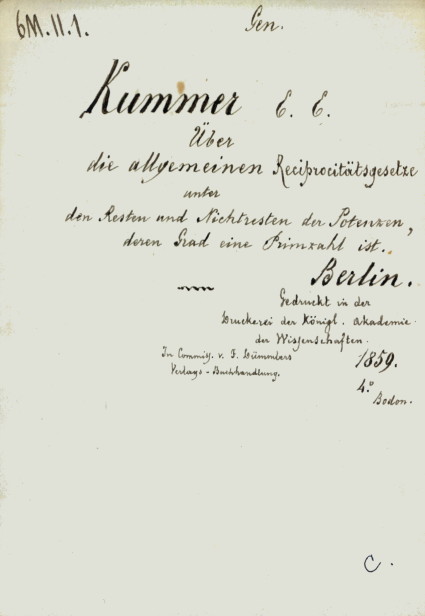 6M.II.1.
Gen.
Kummer E. E.
Über
die allgemeinen Reciprocitätsgesetze
unter
den Resten und Nichtresten der Potenzen,
deren Grad eine Primzahl ist.
Berlin.
Gedruckt in der
Druckerei der Königl. Akademie
der Wissenschaften.
In Commiss. v. F. Dümmlers
Verlags-Buchhandlung.
1859.
4.º
Bodon.
C.